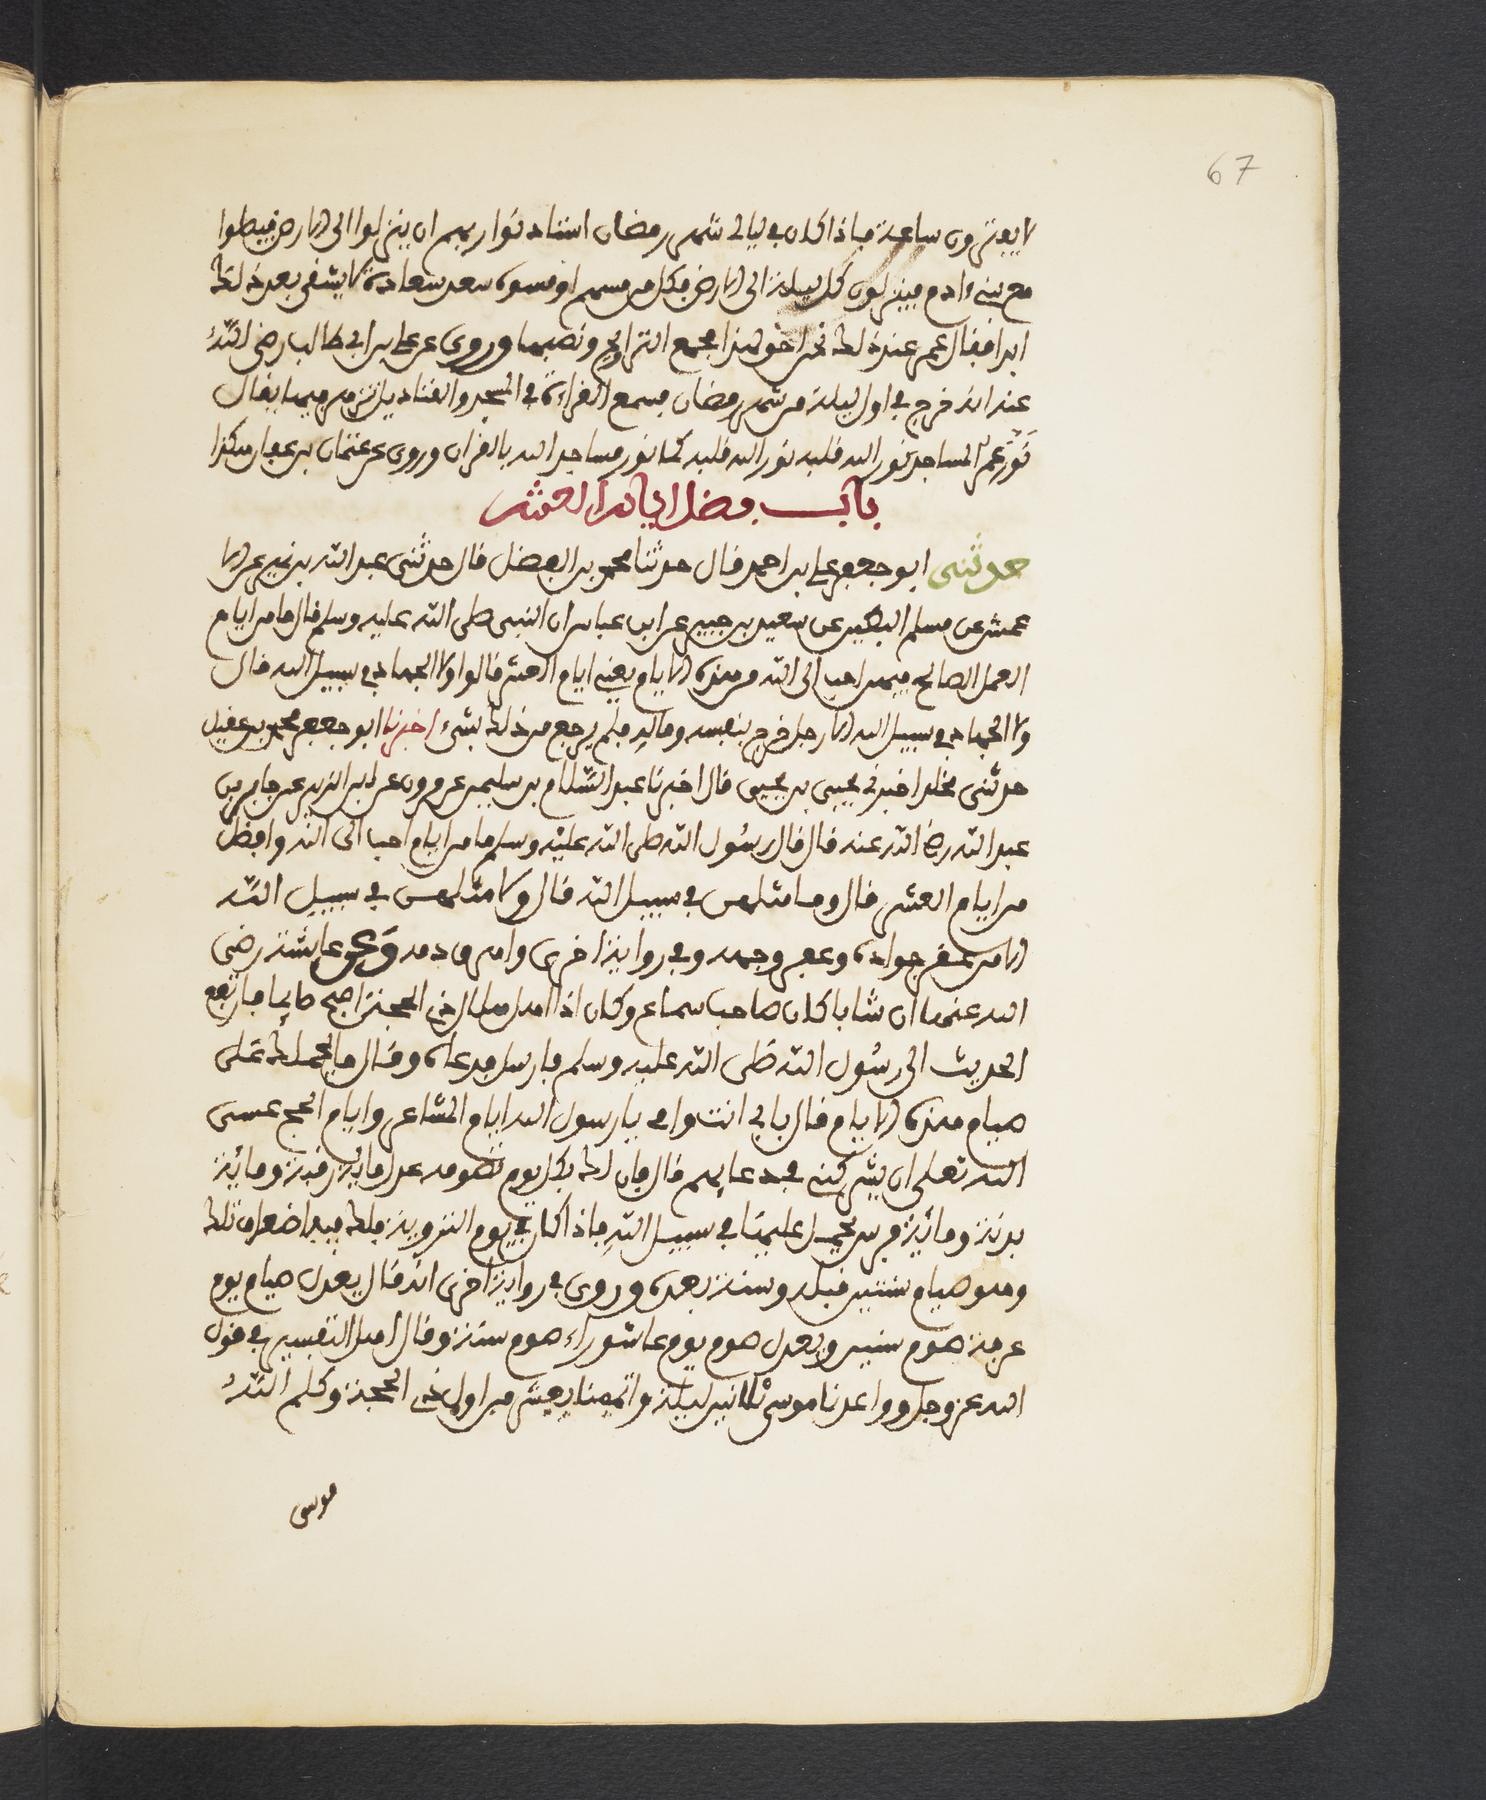 67
لا يفترون ساعة فاذا كان في ليالي شهر رمضان استاذنوا ربهم ان ينزلوا الى الارض فيصلوا
مع بني ءادم فينزلون كل ليلة الى الارض فكل من مسهم او مسوه سعد سعادة لا يشقى بعد ذلك
ابدا فقال عمر عند ذلك نحن احق بهذا فجمع التراويح ونصبها وروى عن علي بن ابي طالب رضي الله
عنه انه خرج في اول ليلة من شهر رمضان فسمع القراءة في المسجد والقناديل تزهر فيها فقال
نور عمر المساجد نور الله قلبه نور الله قلبه كما نور مساجد الله بالقران وروى عن عثمان بن عفان هكذا
باب فضل ايام العشر
حدثنى ابو جعفر علي بن احمد قال حدثنا محمد بن الفضل قال حدثنى عبد الله بن نمير عن الا
عمش عن مسلم البطين عن سعيد بن جبير عن ابن عباس ان النبي صلى الله عليه وسلم قال ما من ايام
العمل الصالح فيهن احب الى الله من هذه الايام يعنى ايام العشر قالوا ولا الجهاد في سبيل الله قال
ولا الجهاد في سبيل الله الا رجل خرج بنفسه وماله فلم يرجع من ذلك بشىء اخبرنا ابو جعفر محمد بن عقيل
حدثنى مخلد اخبرنى يحيى بن يحيى قال اخبرنا عبد السلام بن سليم عن مرون عن ابى الزبير عن جابر بن
عبد الله رضي الله عنه قال قال رسول الله صلى الله عليه وسلم ما من ايام احب الى الله وافضل
من ايام العشر قال وما مثلهن في سبيل الله قال ولا مثلهن في سبيل الله
الا من عقر جواده وعفر وجهه وفي رواية اخرى واهرق دمه وعن عايشة رضي
الله عنها ان شابا كان صاحب سماع وكان اذا اهل هلال ذي الحجة اصبح صايما فارتفع
الحديث الى رسول الله صلى الله عليه وسلم فارسل فدعاه وقال ما يحملك على
صيام هذه الايام قال بابي انت وامي يا رسول الله ايام المشاعر وايام الحج عسى
الله تعلى ان يشركني في دعايهم قال فان لك بكل يوم تصومه عدل ماية رقبة وماية
بدنة وماية فرس يحمل عليها في سبيل الله فاذا كان في يوم التروية فلك فيها ضعاف ذلك
وهو صيام سنتين قبله وسنة بعده وروى في رواية اخرى انه قال يعدل صيام يوم
عرفة صوم سنين ويعدل صوم يوم عاشوراء صوم سنة وقال اهل التفسير في قول
الله عز وجل وواعدنا موسى ثلاثين ليلة واتممناها بعشر من اول ذي الحجة وكلم الله
موسى